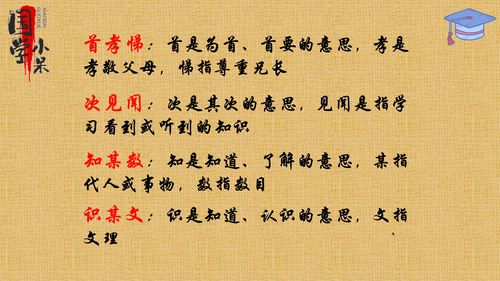 国学
小米
XIAODAI
GUOXUE
首孝悌：首是为首、首要的意思，孝是
孝敬父母，悌指尊重兄长
次见闻：次是其次的意思，见闻是指学
习看到或听到的知识
知某数：知是知道、了解的意思，某指
代人或事物，数指数目
识某文：识是知道、认识的意思，文指
文理